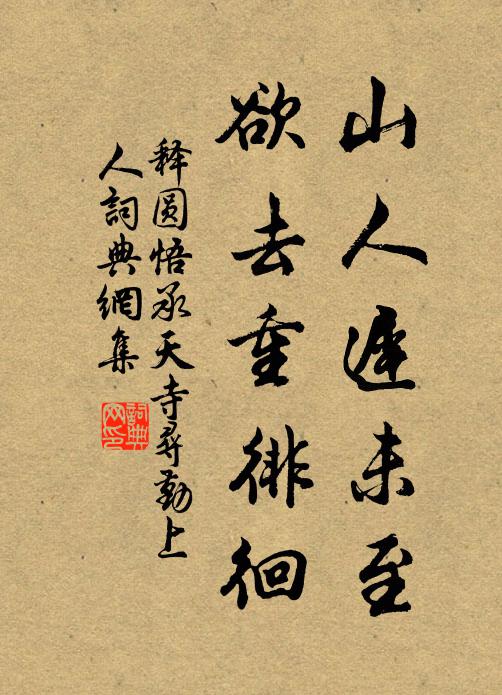 山人遲未至
欲去重徘徊
释圆悟承天寺尋勤上
人詞典網集
詞典网印